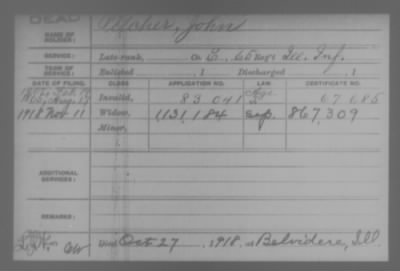 DEAD
NAME OF SOLDIER: Archer, John
SERVICE: Late rank, Co. E, 65 Reg't Ill. Inf.
TERM OF SERVICE: Enlisted , 1 Discharged , 1
DATE OF FILING. CLASS APPLICATION NO. LAW. CERTIFICATE NO.
Invalid, 83 041 67 685
1918 Nov 11 Widow, 1,131,184 867,309
Minor,
ADDITIONAL SERVICES:
REMARKS:
Died Oct 27 , 1918, at Belvidere, Ill.